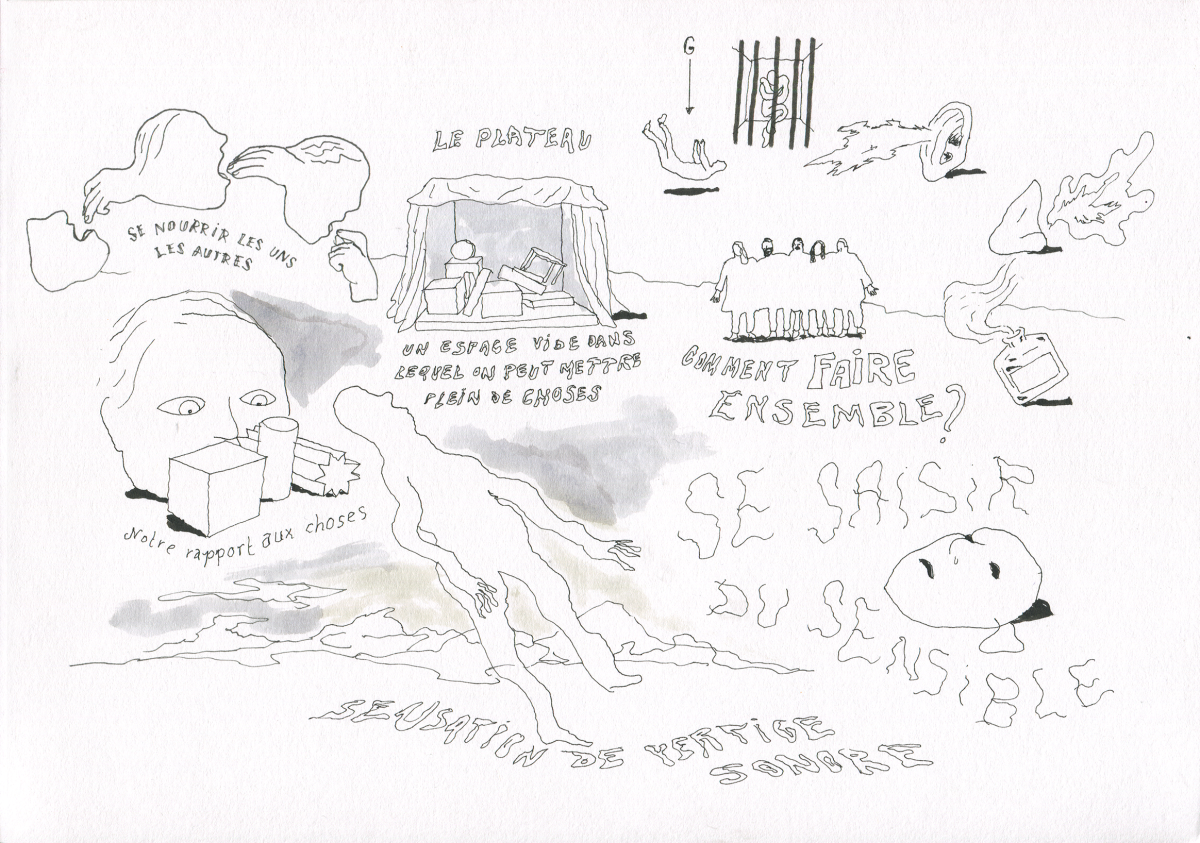 G
LE PLATEAU
SE NOURRIR LES UNS
LES AUTRES
UN ESPACE VIDE DANS
LEQUEL ON PEUT METTRE
PLEIN DE CHOSES
COMMENT FAIRE
ENSEMBLE?
Notre rapport aux choses
SE SAISIR
DU SENSIBLE
SENSATION DE VERTIGE
SONORE